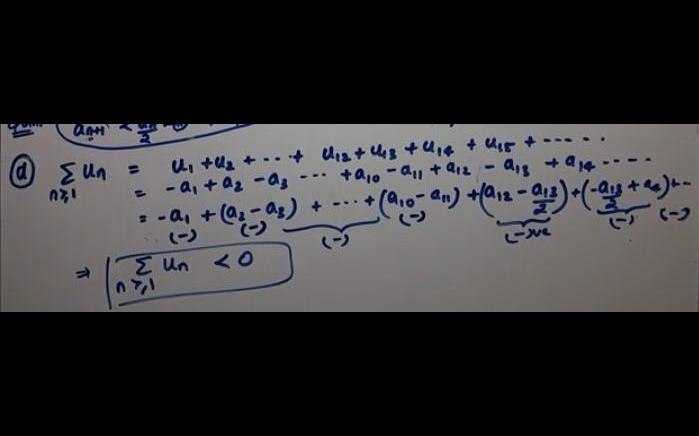 a_{n+1} < \frac{a_n}{2}
(d) \sum_{n≥1} u_n = u_1 + u_2 + ... + u_{12} + u_{13} + u_{14} + u_{15} + ......
= -a_1 + a_2 - a_3 ... + a_{10} - a_{11} + a_{12} - a_{13} + a_{14} ....
= -a_1 + (a_2 - a_3) + ... + (a_{10} - a_{11}) + (a_{12} - \frac{a_{13}}{2}) + (-\frac{a_{13}}{2} + a_4) + ..
(-) (-) (-) (-) (-)ve (-) (-)
⇒ \sum_{n≥1} u_n < 0